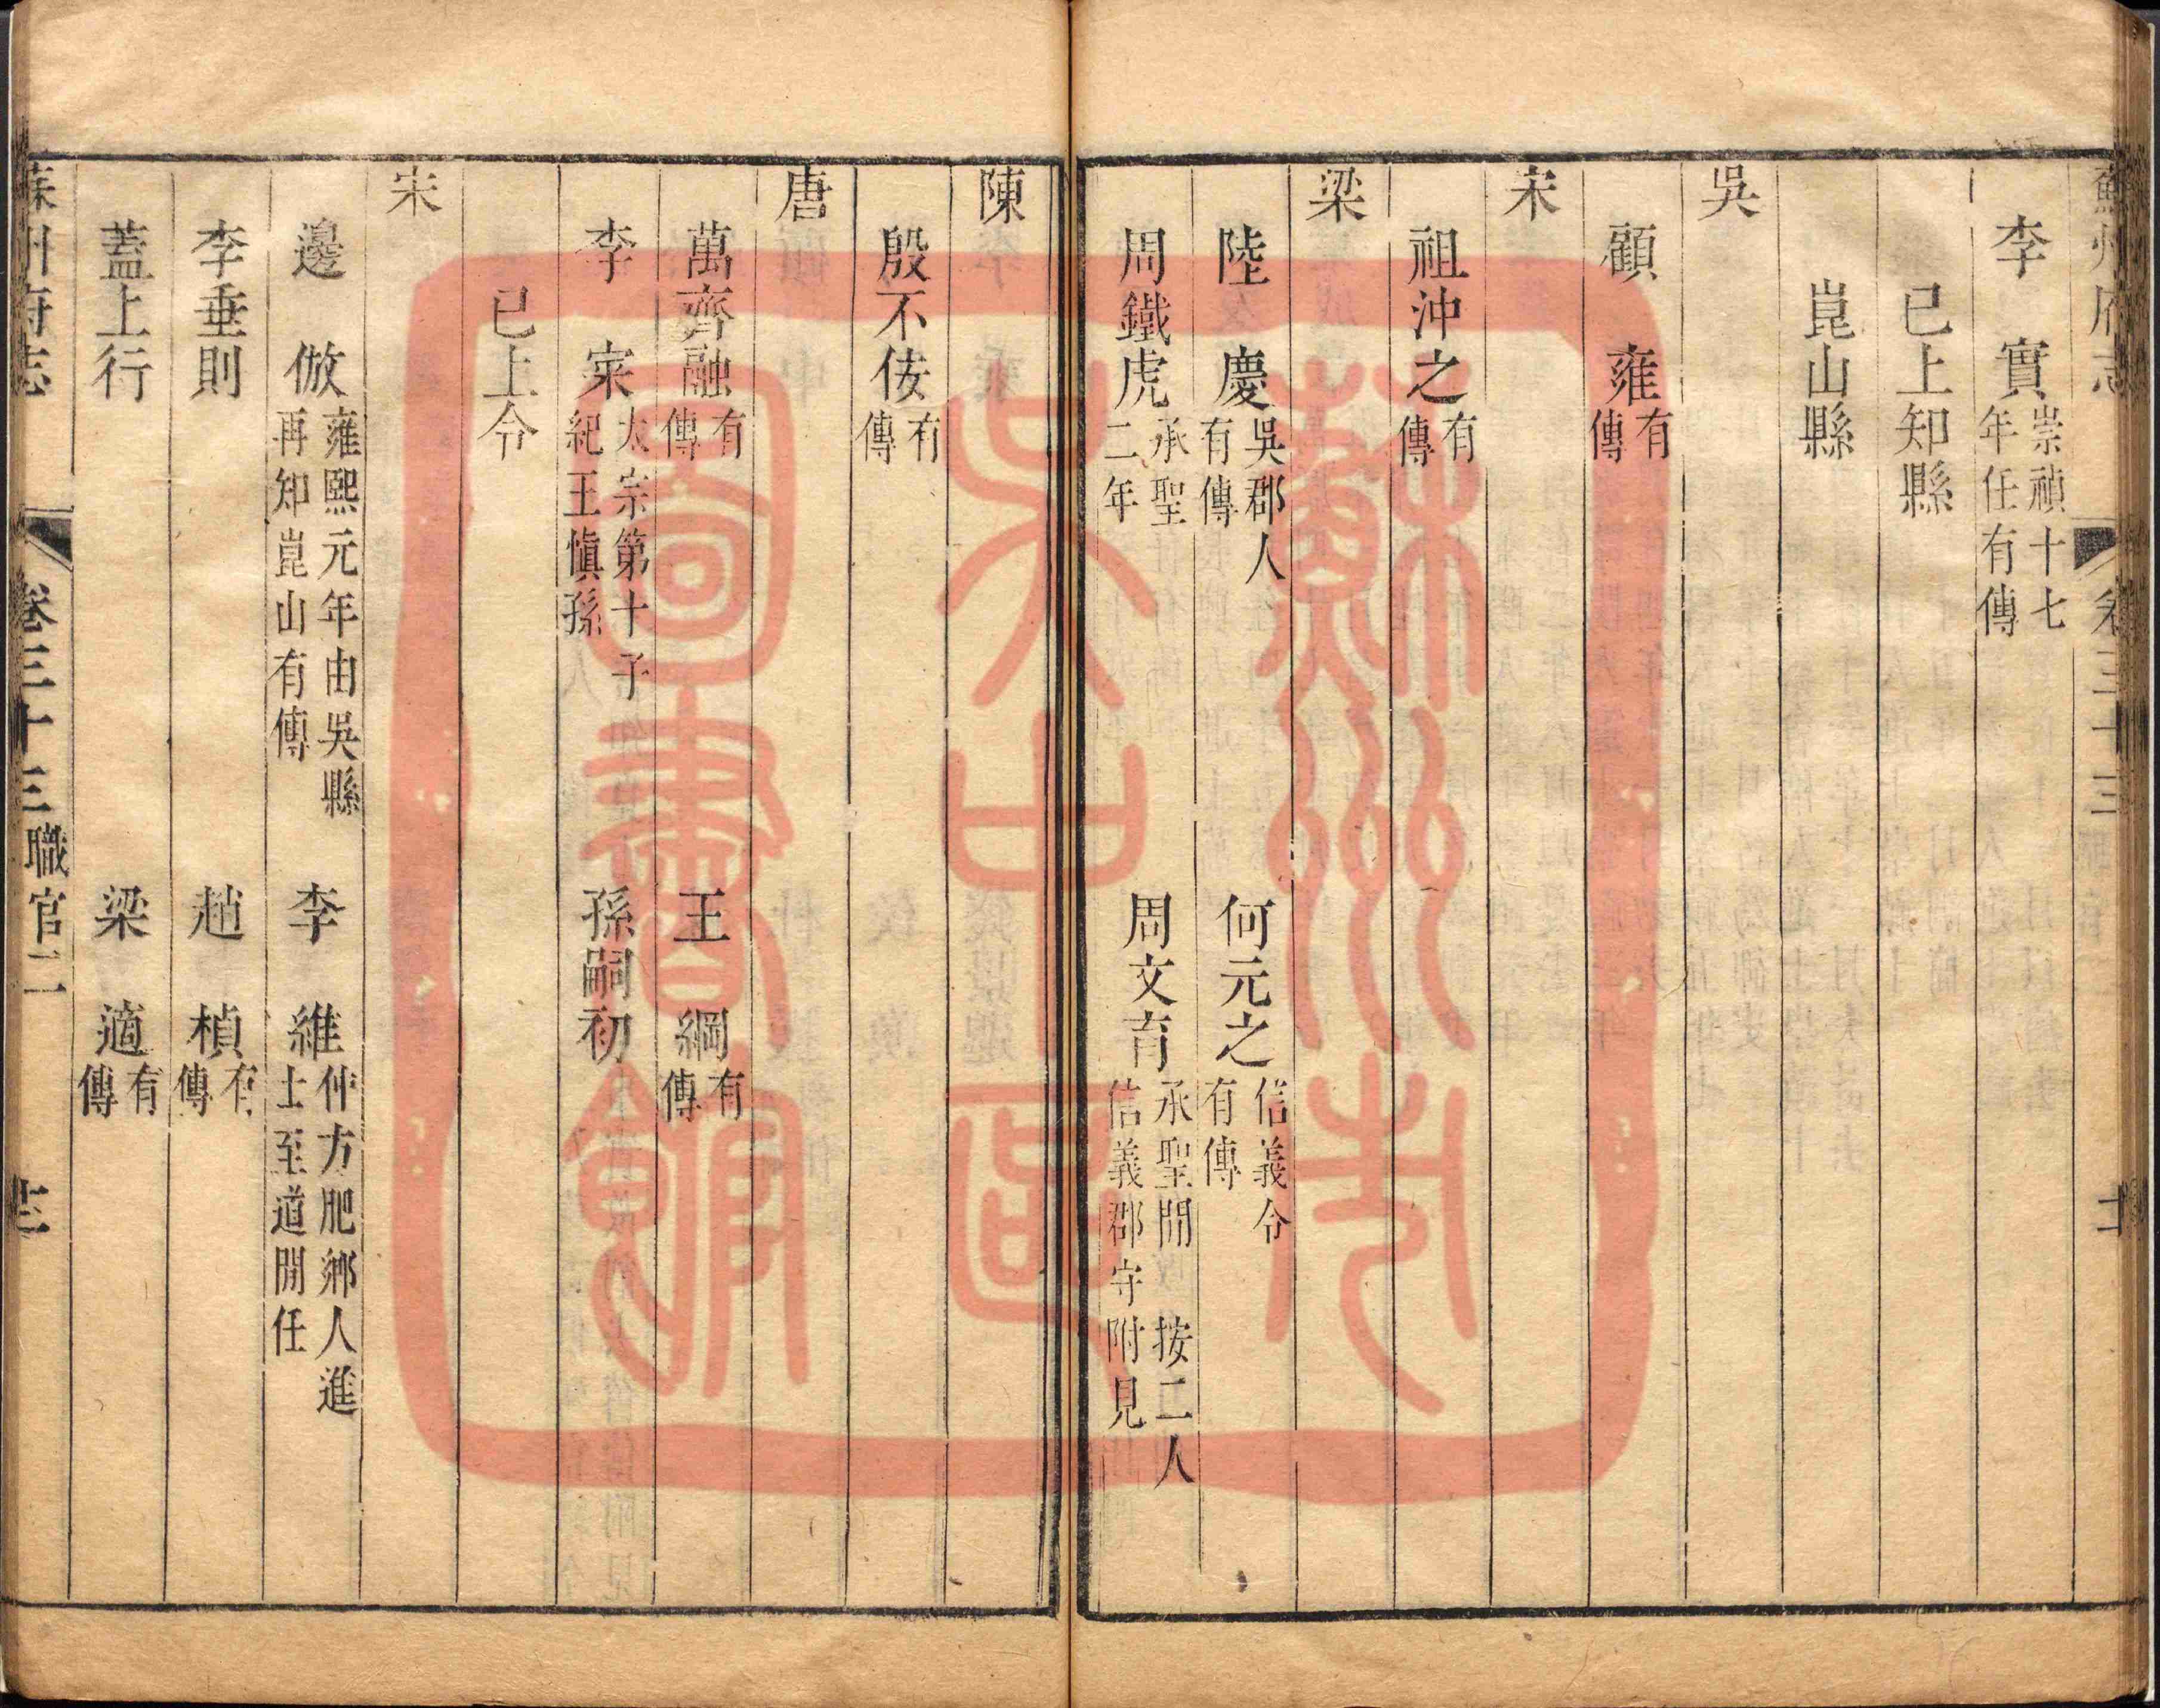 李　實崇禎十七年任有傳
已上知縣
崑山縣
吳
顧　雍有傳
宋
祖沖之有傳
梁
陸　慶吳郡人有傳　何元之信義令有傳
周鐵虎承聖二年　周文育承聖間信義郡守　按二人附見
陳
殷不佞有傳
唐
萬齊融有傳　王　綱有傳
李　寀太宗第十子紀王慎孫　孫嗣初
已上令
宋
邊　倣雍熙元年由吳縣再知崑山有傳　李　維仲方肥鄉人進士至道間任
李垂則　趙　楨有傳
蓋上行　梁　適有傳
蘇州府志　卷三十三　職官二
蘇州市吳中區圖書館